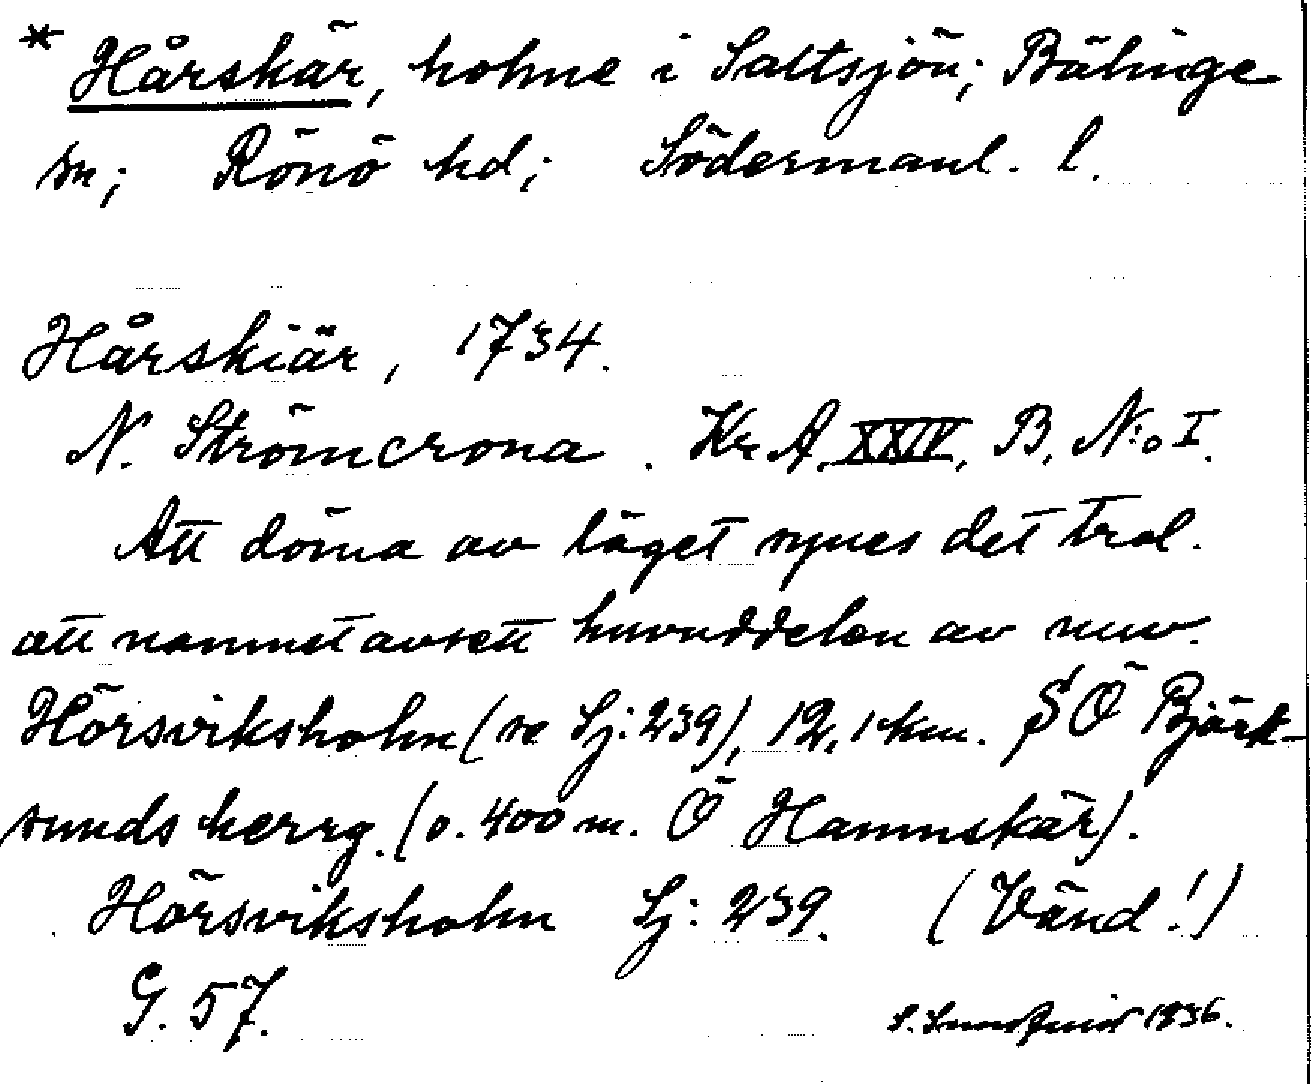 * Hårskär, holme i Saltsjön; Bälinge
sn; Rönö hd; Södermanl. l.
Hårskiär, 1734.
N. Strömcrona. Kr. A. XXIV, B, N:o I.
Att döma av läget synes det trol.
att namnet avsett huvuddelen av nuv.
Hörsviksholm (se Sj: 239), 12,1 km. SÖ Björk-
sunds herrg. (o. 400 m. Ö Hamnskär).
Hörsviksholm Sj: 239. (Vänd!)
G. 57.
S. 1936.